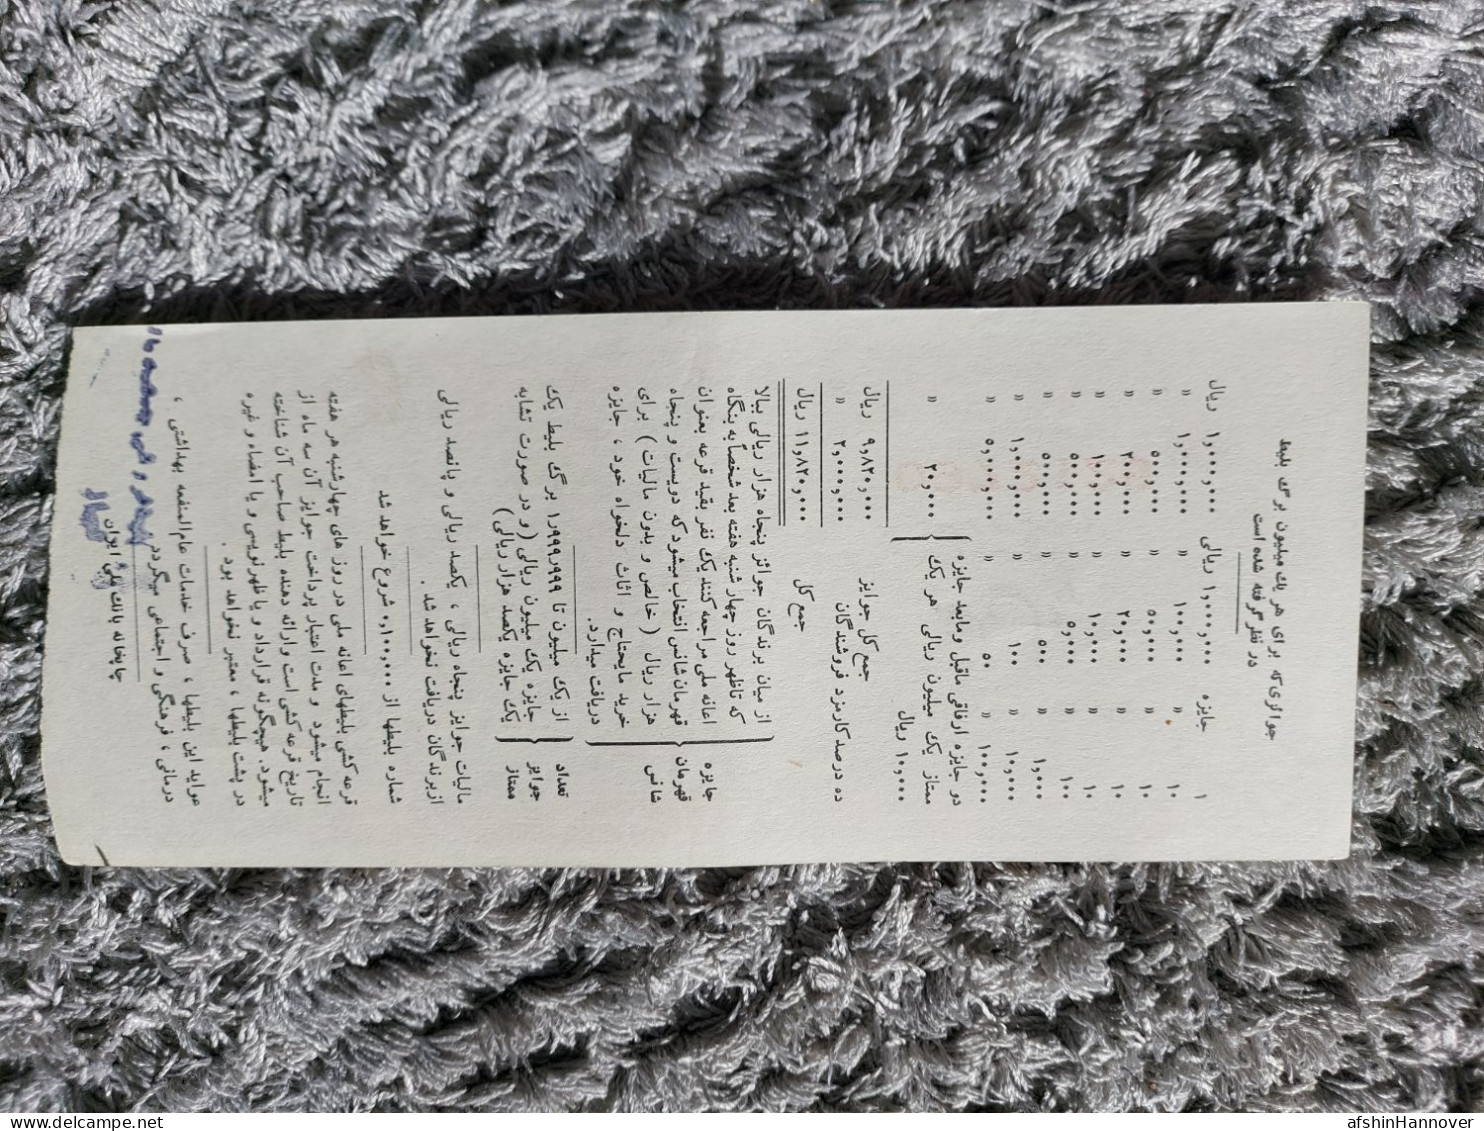 جوائزی که برای هر یک میلیون برگ بلیط
در نظر گرفته شده است
۱ جایزه ۱,۰۰۰,۰۰۰ ریالی ۱,۰۰۰,۰۰۰ ریال
۱۰ » ۱۰۰,۰۰۰ » ۱,۰۰۰,۰۰۰ »
۱۰ » ۵۰,۰۰۰ » ۵۰۰,۰۰۰ »
۱۰ » ۲۰,۰۰۰ » ۲۰۰,۰۰۰ »
۱۰ » ۱۰,۰۰۰ » ۱۰۰,۰۰۰ »
۱۰۰ » ۵,۰۰۰ » ۵۰۰,۰۰۰ »
۱,۰۰۰ » ۵۰۰ » ۵۰۰,۰۰۰ »
۱۰,۰۰۰ » ۱۰۰ » ۱,۰۰۰,۰۰۰ »
۱۰۰,۰۰۰ » ۵۰ » ۵,۰۰۰,۰۰۰ »
دو جایزه ارفاقی ماقبل ومابعد جایزه
ممتاز یک میلیون ریالی هر یک } ۲۰,۰۰۰ »
۱۰,۰۰۰ ریال
جمع کل جوایز ۹,۸۲۰,۰۰۰ ریال
ده درصد کارمزد فروشندگان ۲,۰۰۰,۰۰۰ »
جمع کل ۱۱,۸۲۰,۰۰۰ ریال
از میان برندگان جوائز پنجاه هزار ریالی ببالا
که تاظهر روز چهار شنبه هفته بعد شخصاً به بنگاه
جایزه اعانه ملی مراجعه کنند یک نفر بقید قرعه بعنوان
قهرمان قهرمان شانس انتخاب میشود که دویست و پنجاه
شانس هزار ریال ( خالص و بدون مالیات ) برای
خرید مایحتاج و اثاث دلخواه خود ، جایزه
دریافت میدارد.
تعداد از یک میلیون تا ۱٫۹۹۹٫۹۹۹ برگ بلیط یک
جوایز جایزه یک میلیون ریالی (و در صورت تشابه
ممتاز یک جایزه یکصد هزار ریالی)
مالیات جوایز پنجاه ریالی ، یکصد ریالی و پانصد ریالی
از برندگان دریافت نخواهد شد .
شماره بلیطها از ۱۰۰,۰۰۰ر۰ شروع خواهد شد
قرعه کشی بلیطهای اعانه ملی در روز های چهارشنبه هر هفته
انجام میشود و مدت اعتبار پرداخت جوایز آن سه ماه از
تاریخ قرعه کشی است وارائه دهنده بلیط صاحب آن شناخته
میشود. هیچگونه قرارداد و یا ظهرنویسی و یا امضاء و غیره
در پشت بلیطها ، معتبر نخواهد بود .
عواید این بلیطها ، صرف خدمات عام‌المنفعه بهداشتی ،
درمانی ، فرهنگی و اجتماعی میگردد
چاپخانه بانک ملی ایران
delcampe.net
afshinHannover